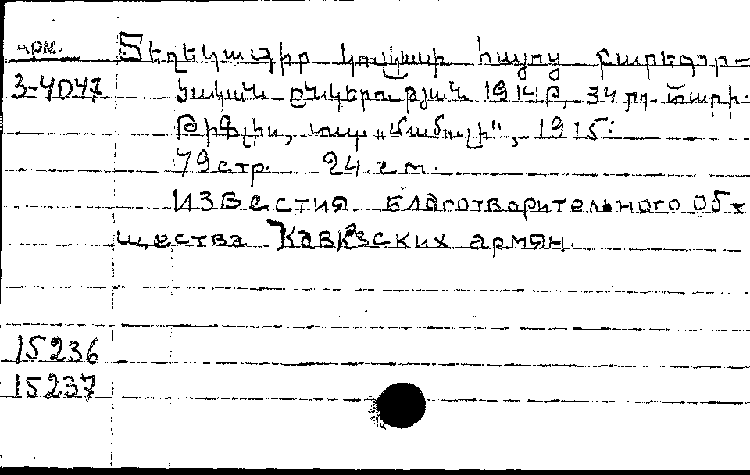 арм. Տեղեկագիր կովկասի հայոց բարեգոր-
3-4047 ծական ընկերության 1914 թ, 34 րդ տարի.
Թիֆլիս, տպ „Մամուլի“, 1915:
79 стр. 24 см.
Известия благотворительного об-
щества Кавказских армян.
15236
15237